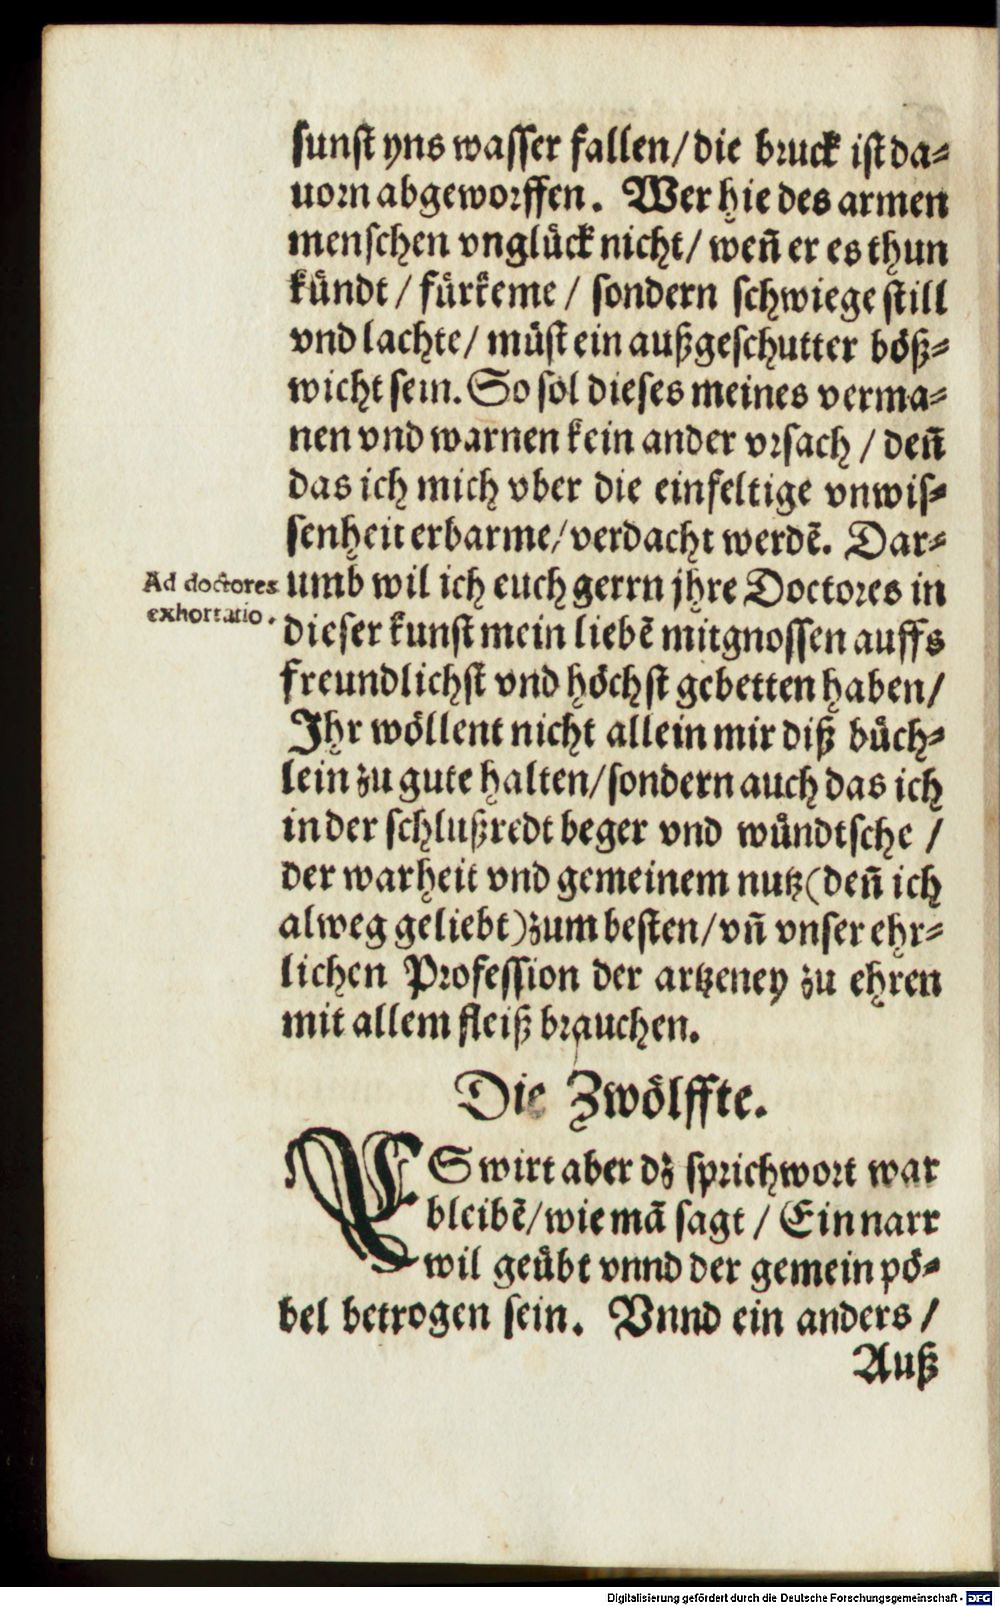 sunst yns wasser fallen/die bruck ist da⸗
uorn abgeworffen. Wer hie des armen
menschen vnglück nicht/ weñ er es thun
kündt / fürkeme / sondern schwiege still
vnd lachte/ müst ein außgeschutter böß⸗
wicht sein. So sol dieses meines verma⸗
nen vnd warnen kein ander vrsach / deñ
das ich mich vber die einfeltige vnwis⸗
senheit erbarme/verdacht werdẽ. Dar⸗
Ad doctores exhortatio.
umb wil ich euch gerrn jhre Doctores in
dieser kunst mein liebẽ mitgnossen auffs
freundlichst vnd höchst gebetten haben/
Ihr wöllent nicht allein mir diß büch⸗
lein zu gute halten/sondern auch das ich
in der schlußredt beger vnd wündtsche /
der warheit vnd gemeinem nutz(deñ ich
alweg geliebt)zum besten/vñ vnser ehr⸗
lichen Profession der artzeney zu ehren
mit allem fleiß brauchen.
Die Zwölffte.
ES wirt aber dz sprichwort war
bleibẽ/wie mã sagt / Ein narr
wil geübt vnnd der gemein pö⸗
bel betrogen sein. Vnnd ein anders /
Auß
Digitalisierung gefördert durch die Deutsche Forschungsgemeinschaft - DFG